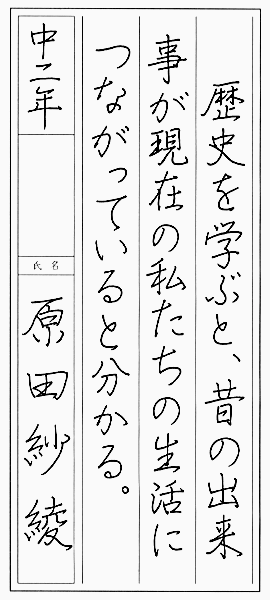 歴史を学ぶと、昔の出来
事が現在の私たちの生活に
つながっていると分かる。
中二年
氏名
原田紗綾